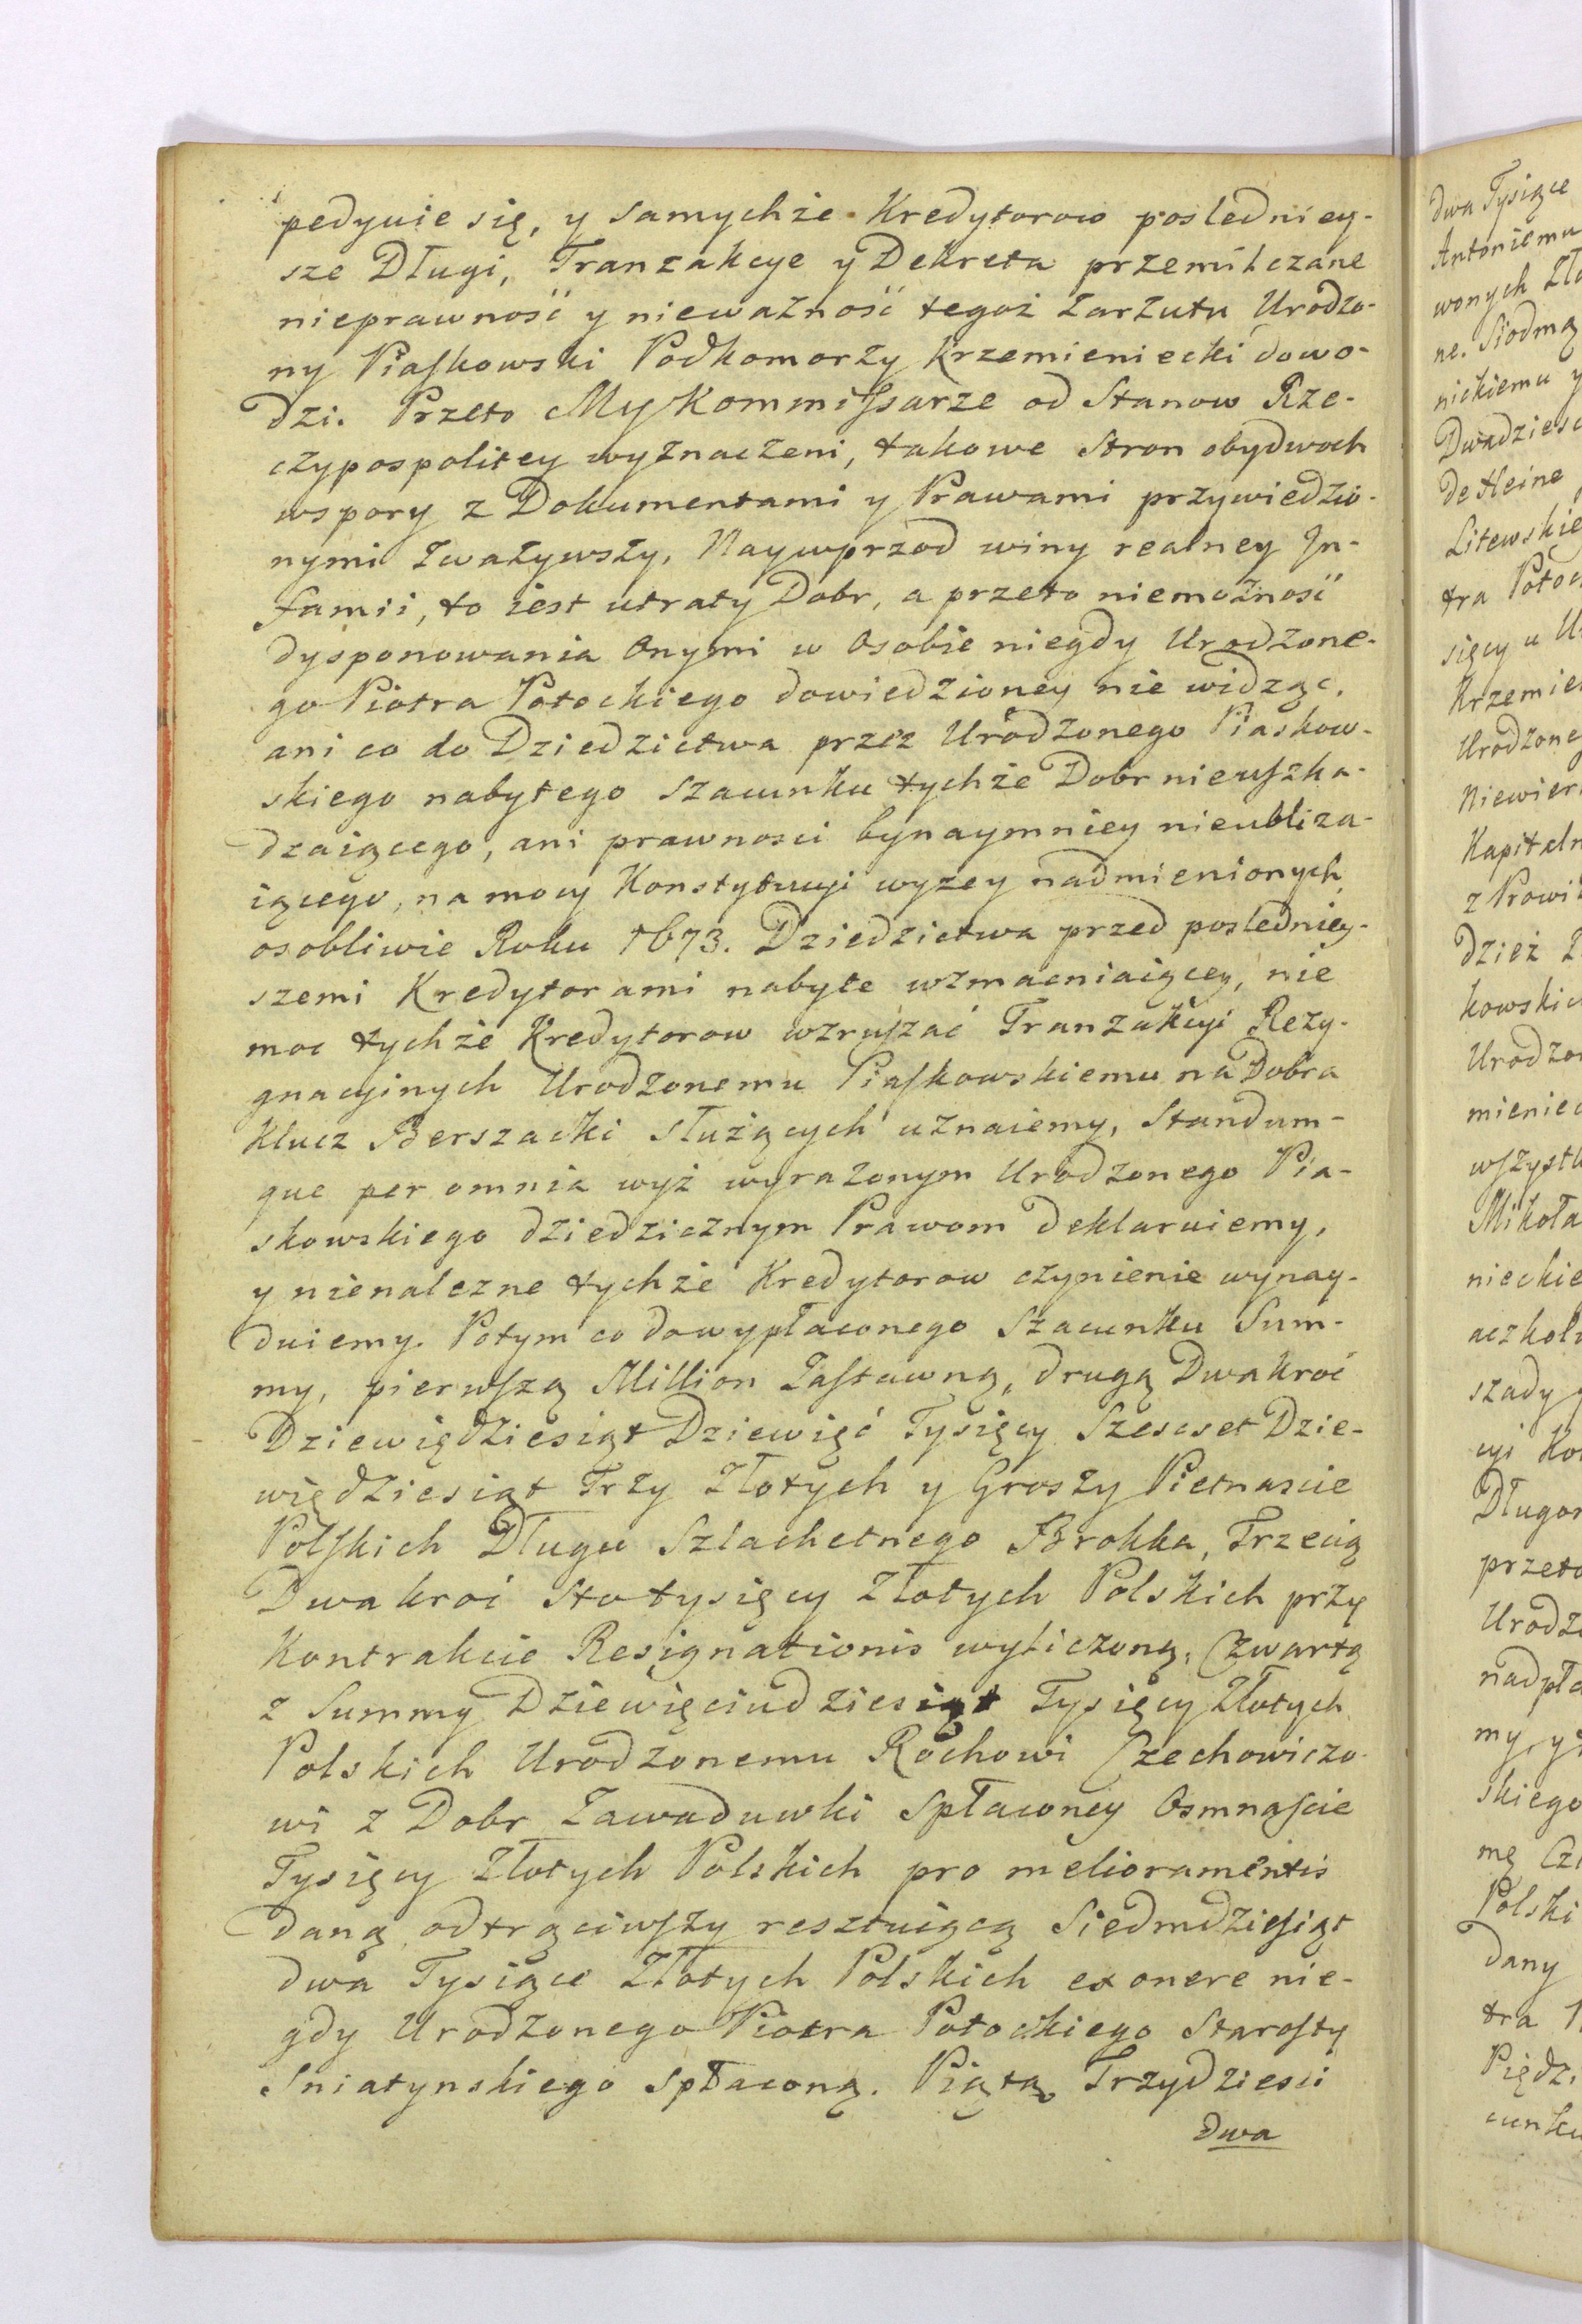 pedyuie się, y samychże Kredytorow posledniey-
sze Długi, Tranzakcye y Dekreta przemilczane
nieprawność y nieważność tegoż zarzutu Urodzo-
ny Piaskowski Podkomorzy Krzemieniecki dowo-
dzi. Przeto My Kommissarze od Stanow Rze-
czypospolitey wyznaczeni, takowe Stron obydwoch
wspory z Dokumentami y Prawami przywiedzio-
nymi zważywszy, Naywprzod winy realney In-
famii, to iest utraty Dobr, a przeto niemożność
dysponowania Onymi w Osobie niegdy Urodzone-
go Piotra Potockiego dowiedzioney nie widząc,
ani co do Dziedzictwa przez Urodzonego Piaskow-
skiego nabytego szacunku tychże Dobr nieuszka-
dzaiącego, ani prawnosci bynaymniey nieubliza-
iącego, na mocy Konstytucyi wyzey nadmienionych
osobliwie Roku 1673. Dziedzictwa przed posledniey-
szemi Kredytorami nabyte wzmacniaiącey, nie
moc tychże Kredytorow wzruszać Tranzakcyi Rezy-
gnacyinych Urodzonemu Piaskowskiemu na Dobra
Klucz Berszacki służących uznaiemy, Standum-
que per omnia wyż wyrazonym Urodzonego Pia-
skowskiego dziedzicznym Prawom deklaruiemy,
y nienalezne tychże Kredytorow czynienie wynay-
duiemy. Potym co do wypłaconego Szacunku Sum-
my, pierwszą Million Zastawną, drugą Dwakroć
Dziewiędziesiąt Dziewięć Tysięcy Szescset Dzie-
więdziesiąt Trzy Złotych y Groszy Pietnascie
Polskich Długu Szlachetnego Brokka, Trzecią
Dwakroć Stotysięcy Złotych Polskich przy
Kontrakcie Resignationis wyliczoną, Czwartą
z Summy Dziewięciudziesiąt Tysięcy Złotych
Polskich Urodzonemu Rochowi Czechowiczo-
wi z Dobr Zawaduwki Spłaconey Osmnascie
Tysięcy Złotych Polskich pro melioramentis
daną odtrąciwszy resztuiącą Siedmdziesiąt
dwa Tysiące Złotych Polskich ex onere nie-
gdy Urodzonego Piotra Potockiego Starosty
Sniatynskiego spłaconą. Piątą Trzydziesci
dwa
dwa Tysiące
Antoniemu
wonych Zło
ne. Siodmą
nickiemu y
Dwadziesc
de Heine
Litewskie
tra Potoc
sięcy u U
Krzemie
Urodzoneg
Niewier
Kapitaln
z Prowiz
dzież
kowskie
Urodzon
mieniec
wszystk
Mikoła
nieckie
aczkol
szady
cyi Ko
Długo
przeto
Urodz
nadpła
my, y
skiego
mę Cz
Polski
dany
tra
Piędz
cunku